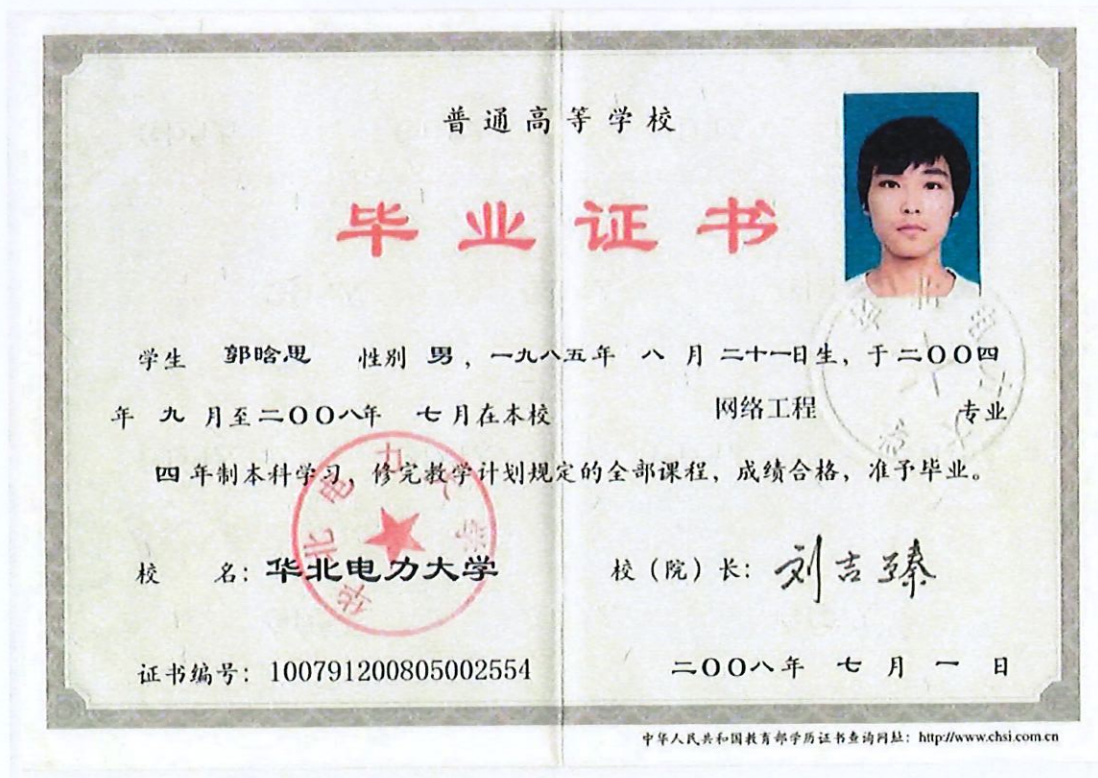 普通高等学校
毕业证书
学生 郭晗思 性别 男，一九八五年 八 月 二十一日生，于二〇〇四
年 九 月至二〇〇八年 七月在本校 网络工程 专业
四 年制本科学习，修完教学计划规定的全部课程，成绩合格，准予毕业。
校 名：华北电力大学 校（院）长：刘吉臻
华北电力大学
证书编号：100791200805002554 二〇〇八年 七 月 一 日
中华人民共和国教育部学历证书查询网址：http://www.chsi.com.cn